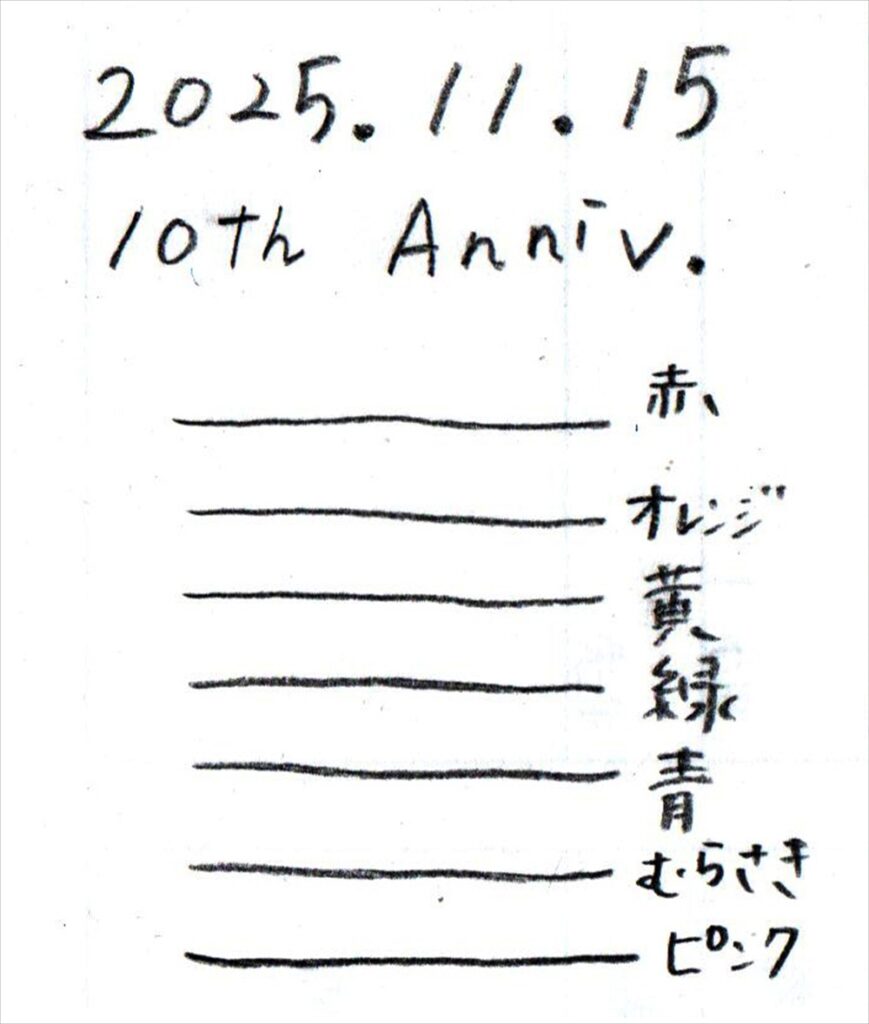 2025.11.15
10th Anniv.
赤
オレンジ
黄
緑
青
むらさき
ピンク